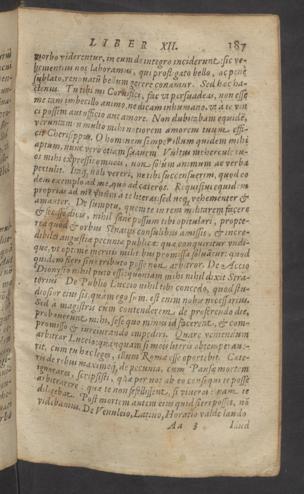 LIBER XII. 187
morbo viderentur, in eum de integro inciderunt: sic ve-
hementius nos laboramus, qui profligato bello, ac pene
sublato, renovatum bellum gerere conamur. Sed hoc ha-
ctenus. Tu tibi mi Cornifici, fac ut persuadeas, non esse
me tam imbecillo animo, ne dicam inhumano, ut à te vin-
ci possim aut officio aut amore. Non dubitabam equidem,
verumtamen multo mihi notiorem amorem tuum effi-
cit Cherippus. O hominem semper illum quidem mihi
aptum, nunc vero etiam suavem. Vultus mehercule tu-
os mihi expressit omneis, non solùm animum ac verba
pertulit. Itaq; noli vereri, ne tibi succensuerim, quod eo-
dem exemplo ad me quo ad cæteros. Requisivi equidem
proprias ad me unum à te literas: sed neq; vehementer &
amanter. De sumptu, quem te in rem militarem facere
& fecisse dicis, nihil sane possum tibi opitulari, propte-
rea quòd & orbus senatus consulibus amissis, & incre-
dibiles angustiæ pecuniæ publicæ: quæ conquiritur undi-
que, ut optime meritis militibus promissa solvantur: quod
quidem fieri sine tributo posse non arbitror. De Attio
Dionysio nihil puto esse: quoniam mihi nihil dixit Stra-
torius. De Publio Luccio nihil tibi concedo, quod stu-
diosior eius sis, quàm ego sum. est enim nobis necessarius.
Sed à magistris cum contenderem de proferendo die,
probaverunt mihi, sese quo minus id facerent, & com-
promisso & iureiurando impediri. Quare veniendum
arbitror Luccio: quanquam si meis literis obtemperavit,
cum tu hæc leges, illum Romæ esse oportebit. Cæte-
ris de rebus maximeq; de pecunia, cum Pansæ mortem
ignorares, scripsisti, quæ per nos ab eo consequi te posse
arbitrarere: quæ te non fefellissent, si viveret: nam te
diligebat. Post mortem autem eius quid fieri posset, non
videbamus. De Venuleio, Latino, Horatio valde laudo.
Aa 3 Illud